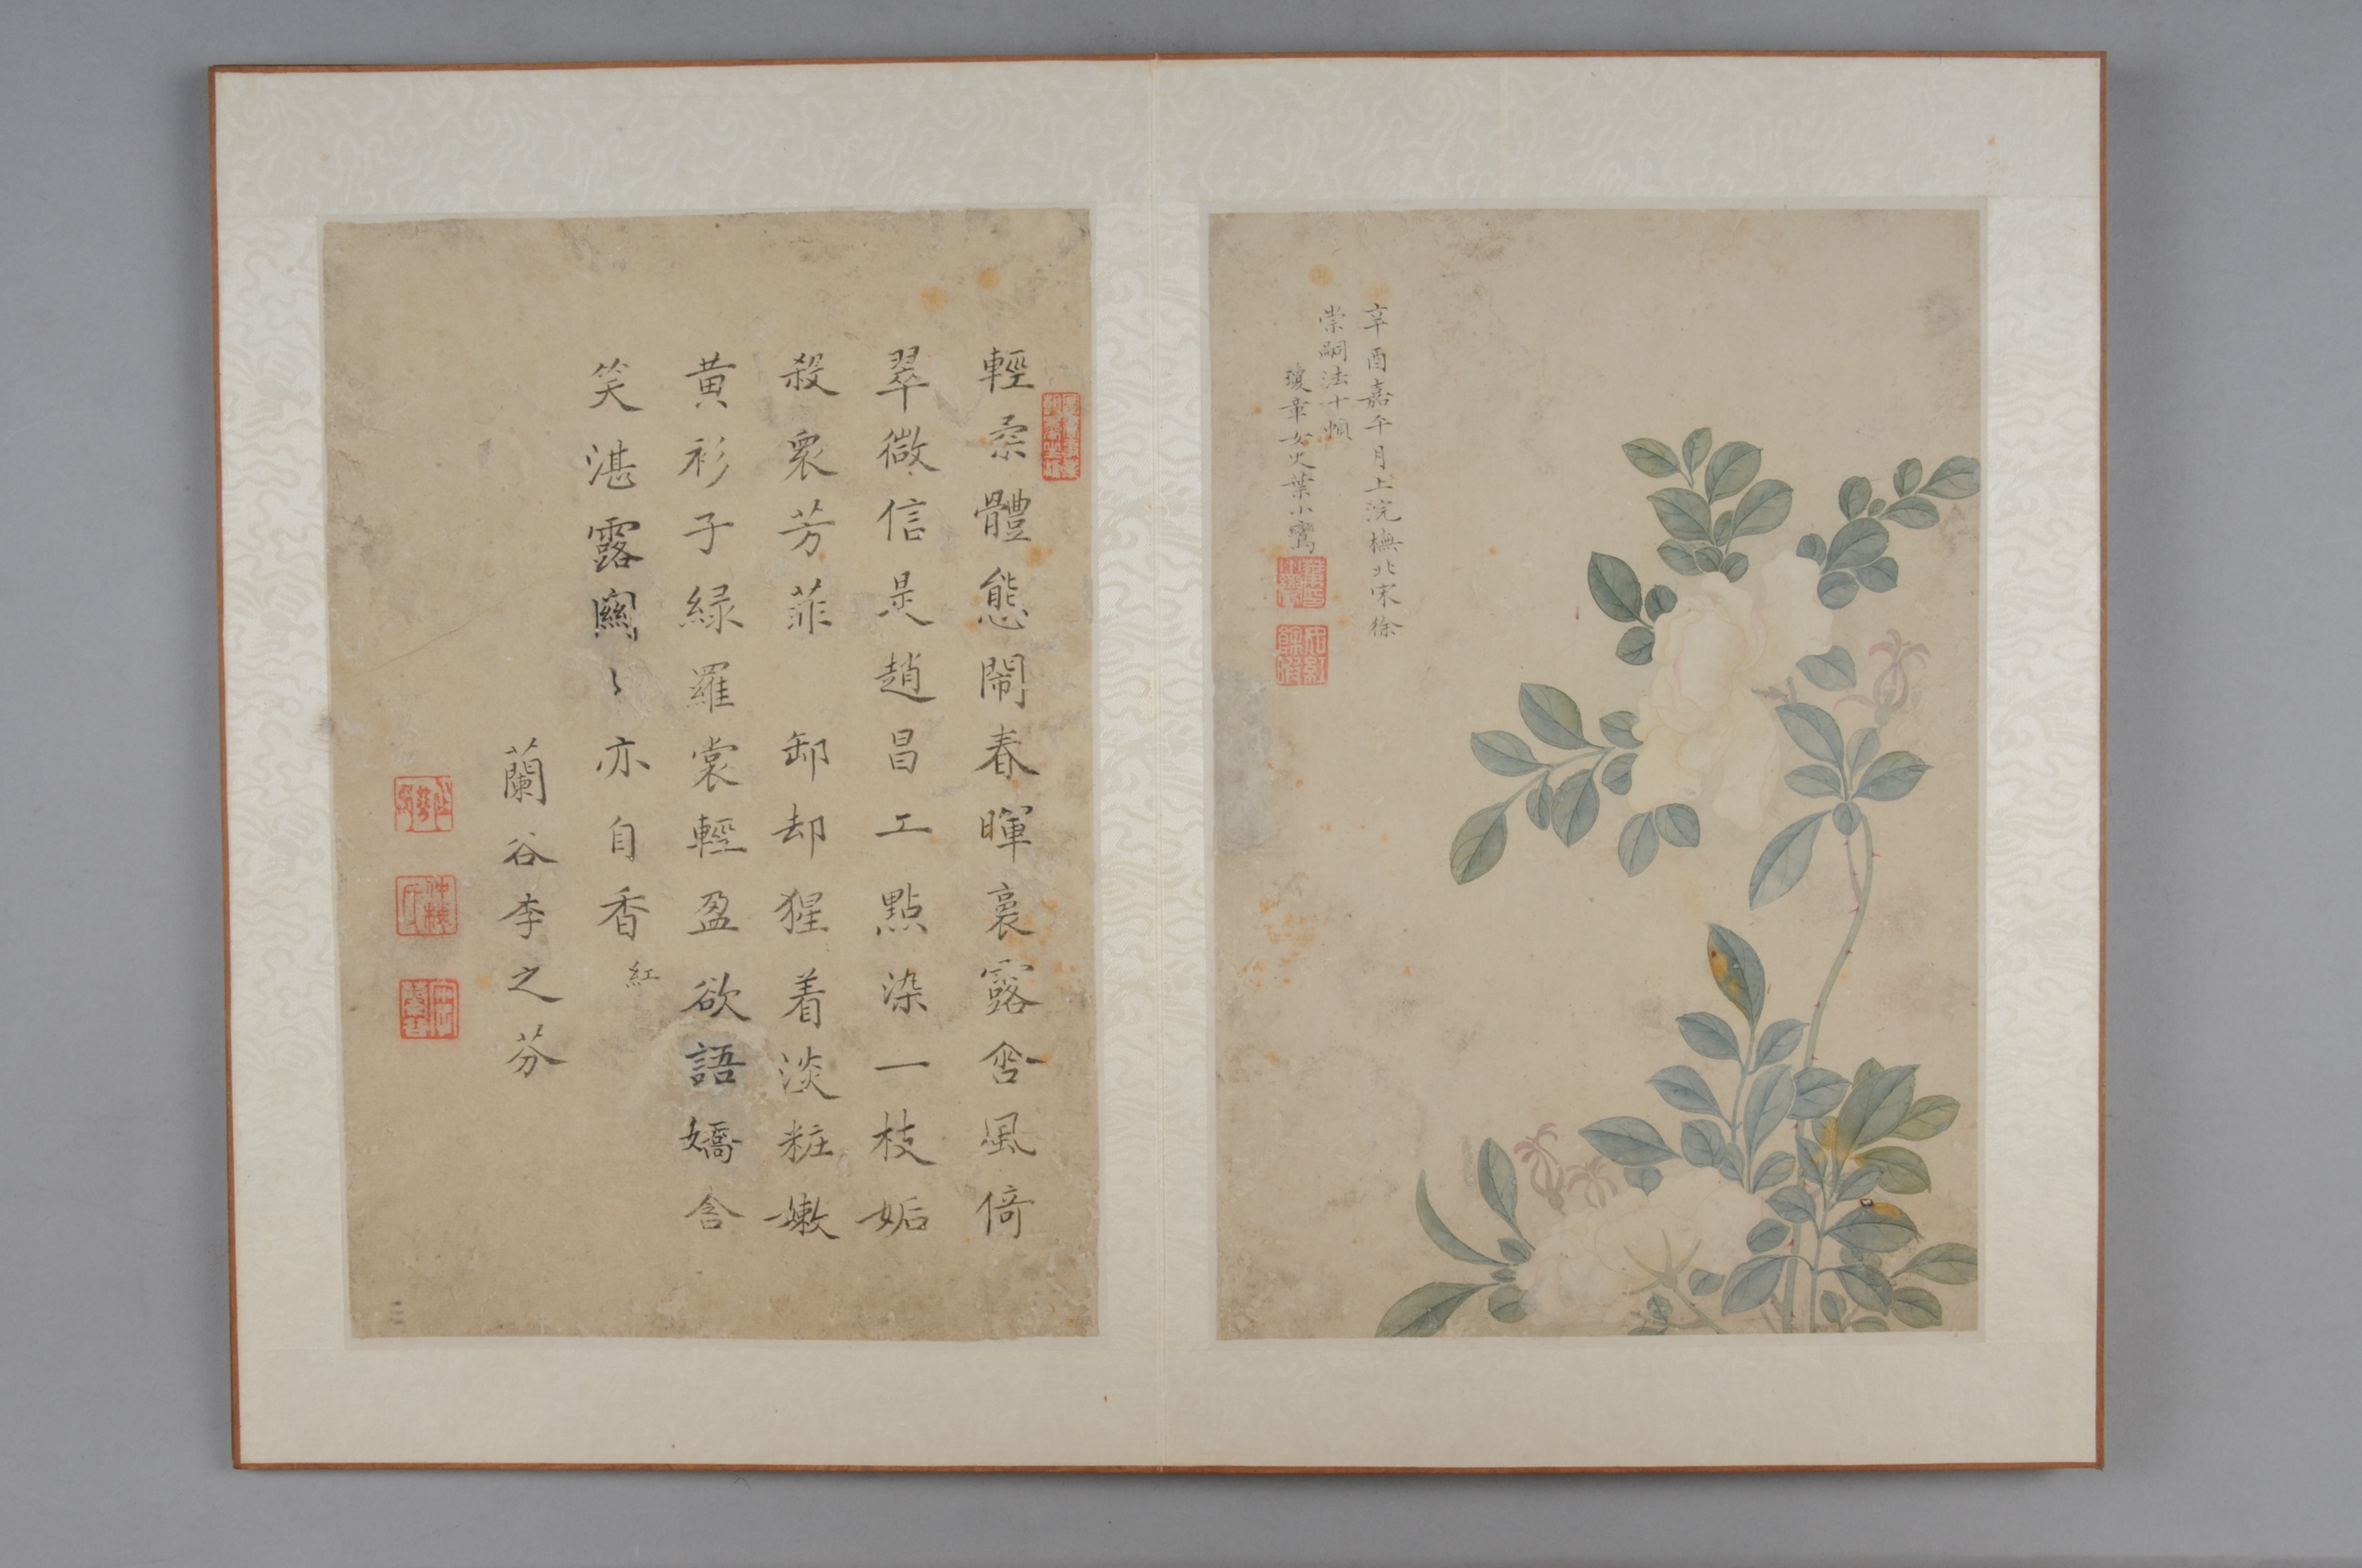 辛酉嘉平月上浣橅北宋徐
崇嗣法十幀
瓊章女史葉小鸞
輕柔體態鬧春暉裛露含風倚
翠微信是趙昌工點染一枝妬
殺衆芳菲 卸却猩着淡粧嫩
黄衫子緑羅裳輕盈欲語嬌含
笑湛露闌〻亦自香
紅
蘭谷李之芬